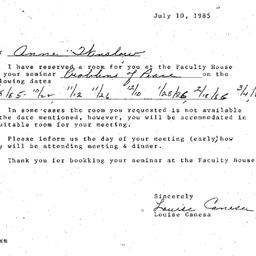 July 10, 1985
Anne Winslow
I have reserved a room for you at the Faculty House
your seminar Problems of Peace on the
owing dates
11/12 11/26 12/10 1/28/86 2/18/86 3/4/
In some cases the room you requested is not available
the date mentioned, however, you will be accommodated in
uitable room for your meeting.
Please inform us the day of your meeting (early) how
y will be attending meeting & dinner.
Thank you for bookking your seminar at the Faculty House
Sincerely
Louise Canesa
Louise Canesa